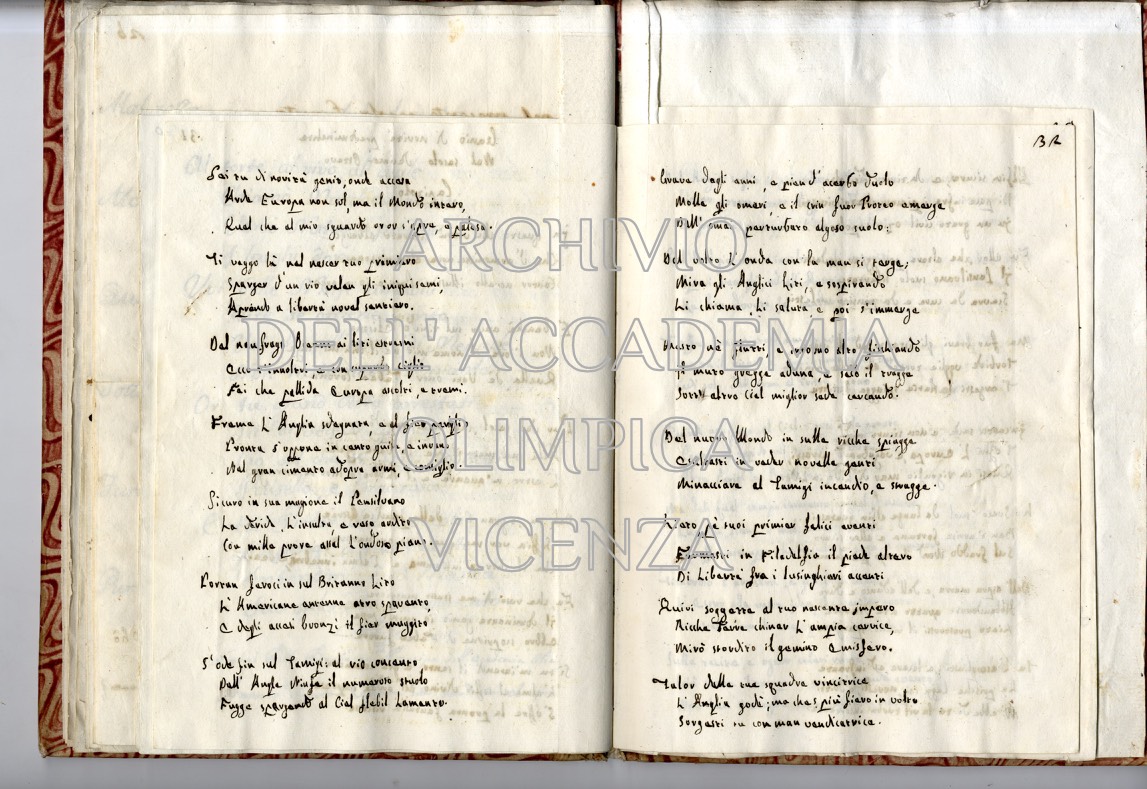 Sei tu di novità genio, onde accesa
Arde Europa non sol, ma il Mondo intero,
Qual che al mio sguardo or or s'offre, e palesa.
Ti veggo là nel nascer tuo primiero
Sparger d'un rio velen gli iniqui semi,
Aprendo a libertà novel sentiero.
Del naufrago ai liti estremi
Ecco t'innoltri e con superbo ciglio
Fai che pallida Europa ascolti, e tremi.
Freme L'Anglia sdegnata, e al fier periglio
Pronta s'oppone in cento guise e invan
Nel gran cimento adopra armi, e consiglio.
Sicuro in sua magione il Pensilvano
La deride, L'insulta, e reso ardito
Con mille prove assal L'ondoso piano.
Portan feroci in sul Britanno Lito
L'Americane antenne atro spavento,
E degli accesi bronzi il fier muggito
S'ode fin sul Tamigi: al rio concento
Dell'Angle Ninfe il numeroso stuolo
Fugge spargendo al Ciel flebil Lamento.
32
Grave degli anni, e pien d'acerbo duolo
Molle gli omeri, e il crin fuor Proteo emerge
Dell' onda perturbato algoso suolo:
Del volto L'onda con la man si terge;
Mira gli Anglici Liti, e sospirando
Li chiama, Li saluta e poi s'immerge
Mesto ne' flutti e intorno altro fischiando
Il muto gregge aduna, e seco il tragge
Sott' altro Ciel miglior sede cercando.
Del nuovo Mondo in sulle ricche spiagge
Esultasti in veder novelle genti
Minacciare al Tamigi incendio, e stragge.
Lieto pe' suoi primier felici eventi
Fermasti in Filadelfia il piede altero
Di Libertà fra i lusinghieri accenti
Quivi soggetta al tuo nascente impero
Ricche Terre chinar L'ampia cervice,
Mirò stordito il gemino Emisfero.
Talor della tua squadra vincitrice
L'Anglia godè; ma che? più fiero in volto
Sorgesti tu con man vendicatrice.
ARCHIVIO
DELL'ACCADEMIA
OLIMPICA
VICENZA